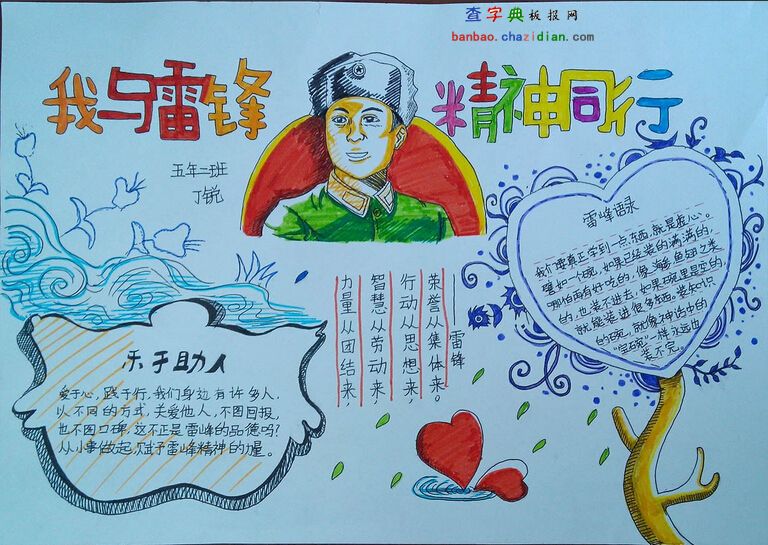 查字典板报网
banbao.chazidian.com
我与雷锋
精神同行
五年二班
丁锐
雷峰语录
我们要真正学到一点东西,就是虚心。
譬如一个碗,如果已经装的满满的,
哪怕再有好吃的,像海参鱼翅之类
的,也装不进去,如果碗里是空的,
就能装进很多东西。装知识
的碗,就像神话中的
“宝碗”一样永远也
装不完。
——雷锋
荣誉从集体来。
行动从思想来,
智慧从劳动来,
力量从团结来,
乐于助人
爱于心,践于行,我们身边有许多人,
以不同的方式,关爱他人,不图回报,
也不图口碑,这不正是雷峰的品德吗?
从小事做起,赋予雷峰精神的力量。